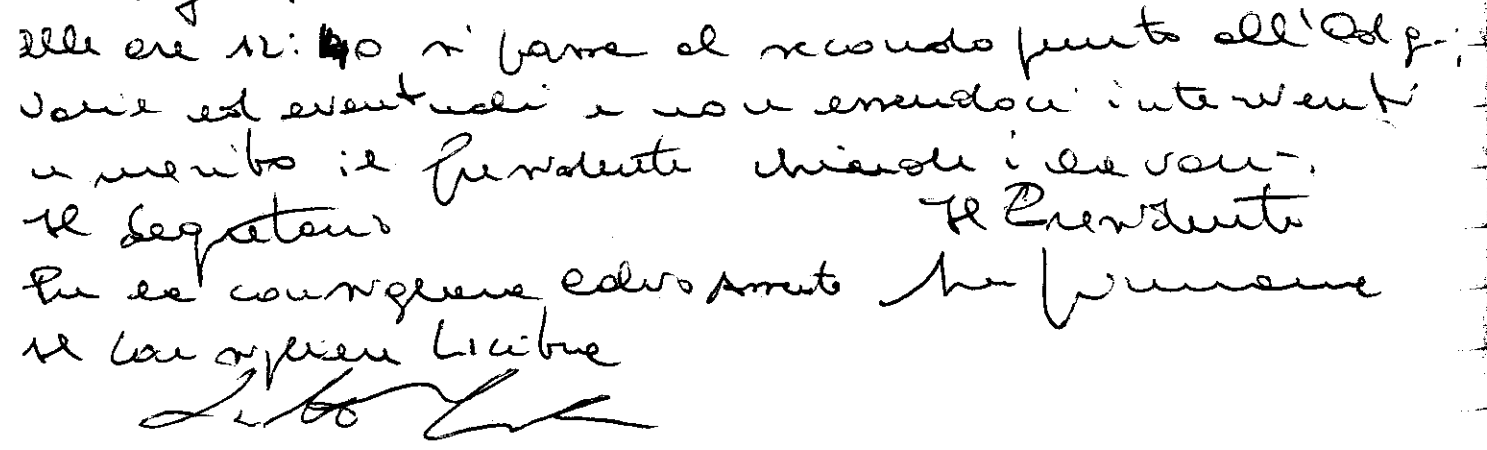 alle ore 12:40 si passa al secondo punto all'Odg.;
varie ed eventuali e non essendoci interventi
in merito il Presidente chiude i lavori.
Il Segretario Il Presidente
Per la consigliera assente
Il Consigliere